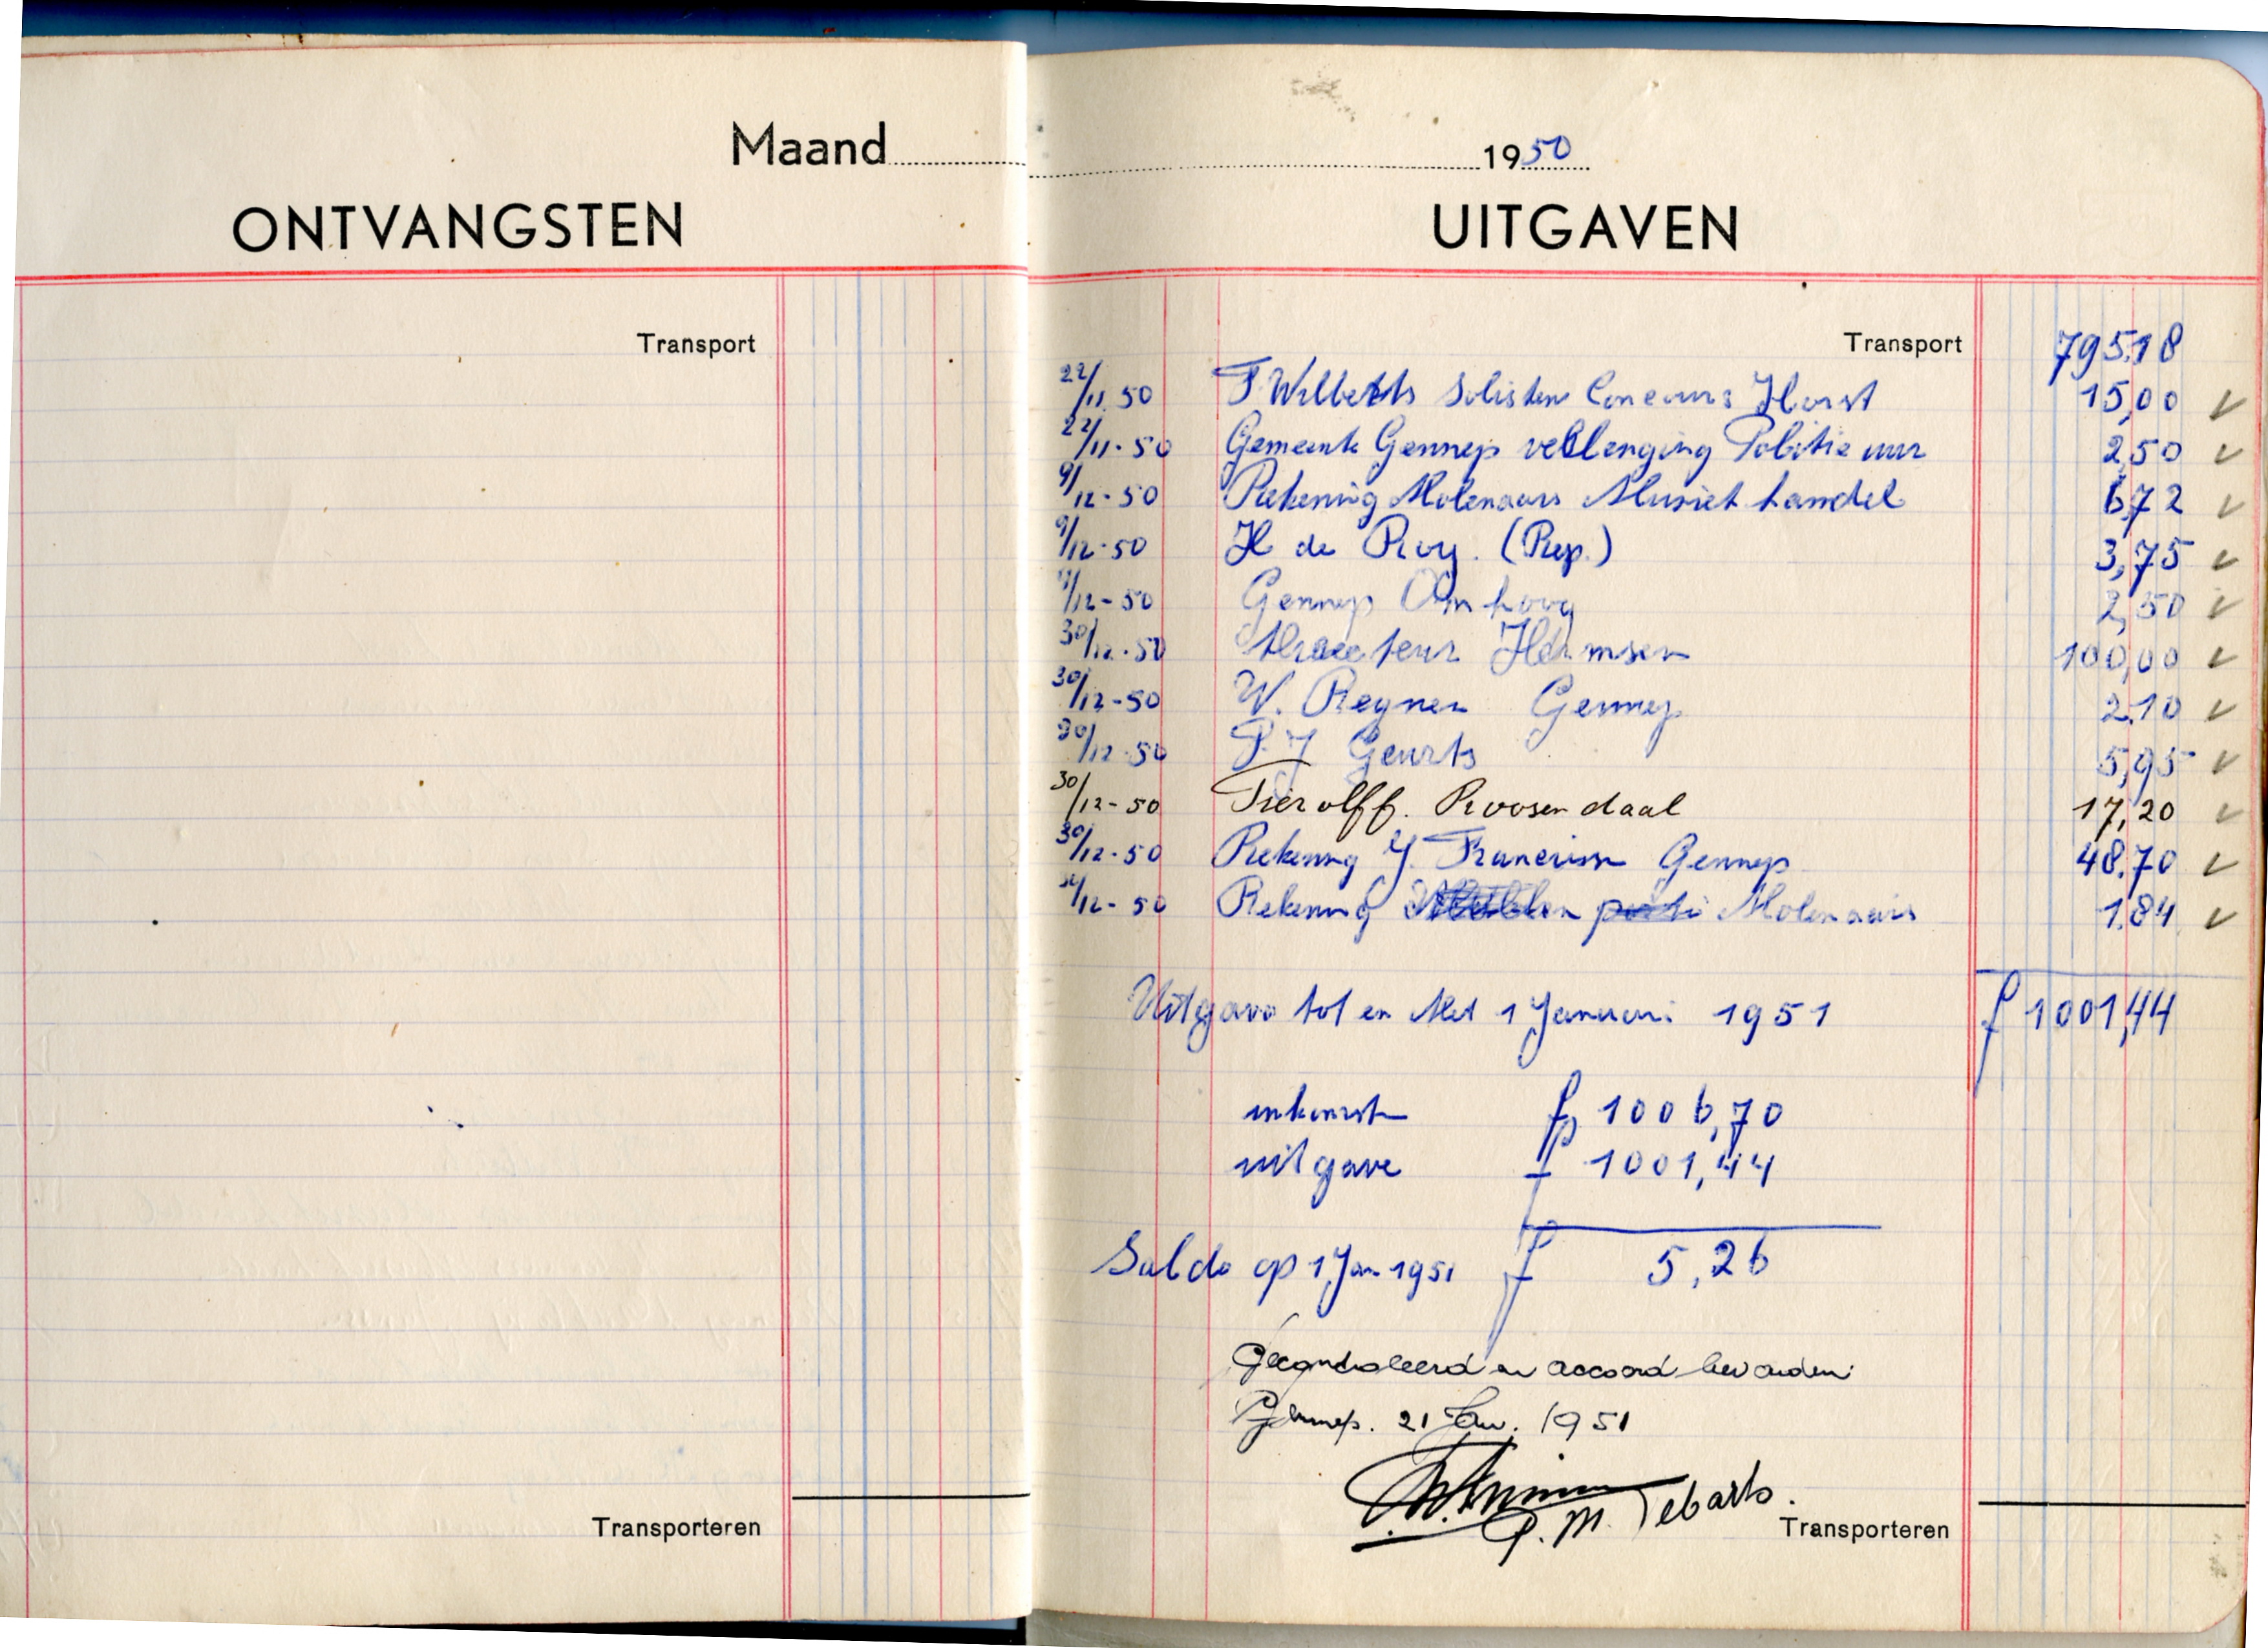 Maand
ONTVANGSTEN
Transport
Transporteren
1950
UITGAVEN
Transport 795.18
22/11.50 F. Wilberts Solisten Concours Horst 15,00 ✓
22/11-50 Gemeente Gennep verlenging Politie uur 2,50 ✓
9/12-50 Rekening Molenaars Musiekhandel 6,72 ✓
9/12-50 H de Roy. (Rep.) 3,75 ✓
/12-50 Gennep Omhoog 2,50 ✓
30/12-50 directeur Hermsen 100,00 ✓
30/12-50 W. Reynen Gennep 2.10 ✓
30/12-50 P.J Geurts 5,95 ✓
30/12-50 Tierolff. Roosendaal 17,20 ✓
30/12-50 Rekening J. Francissen Gennep 48.70 ✓
/12-50 Rekening Molenaars 1.84 ✓
Uitgave tot en Met 1 Januari 1951 f 1001,44
inkomst f 1006,70
uitgave f 1001,44
Saldo op 1 Jan 1951 f 5,26
Gecontroleerd en accoord bevonden:
Gennep. 21 Jan. 1951
P. M. Tebarts.
Transporteren